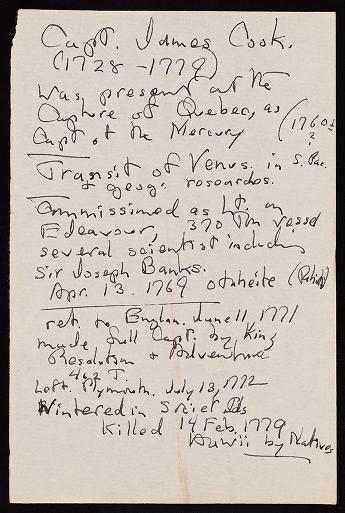 Capt. James Cook.
(1728 - 1779)
was present at the
Capture of Quebec, as
Capt of the Mercury (1760s
?
Transit of Venus. in S. Pac.
& geog. researches.
Commissioned as Lt. on
Edeavour, 370 Ton vessel
several scientist including
Sir Joseph Banks.
Apr. 13. 1769 otaheite (Tahiti)
ret. to England. June 11, 1771
made full Capt. by King
Resolution & Adventure
462 T.
Left. Plymouth. July 13, 1772
Wintered in Societ Ids
Killed 14 Feb. 1779
Hawii by Natives